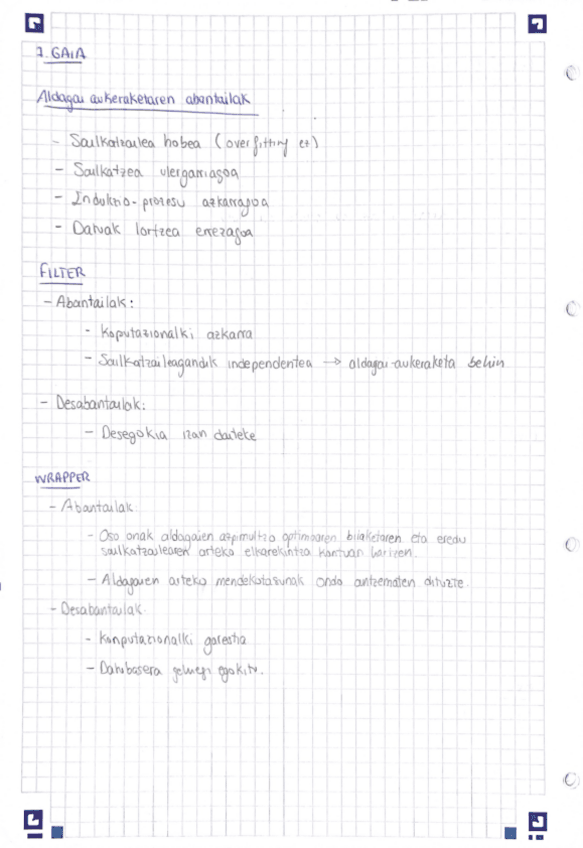 7. GAIA
Aldagai aukeraketaren abantailak
- Sailkatzailea hobea (overfitting ez)
- Sailkatzea ulergarriagoa
- Indukzio-prozesu azkarragoa
- Datuak lortzea errezagoa
FILTER
- Abantailak:
- Koputazionalki azkarra
- Sailkatzaileagandik independentea → aldagai-aukeraketa behin
- Desabantailak:
- Desegokia izan daiteke
WRAPPER
- Abantailak:
- Oso onak aldagaien azpimultzo optimoaren bilaketaren eta eredu
sailkatzailearen arteko elkarekintza kontuan hartzen.
- Aldagaien arteko mendekotasunak ondo antzematen dituzte.
- Desabantailak.
- Konputazionalki garestia
- Datubasera gehiegi egokitu.